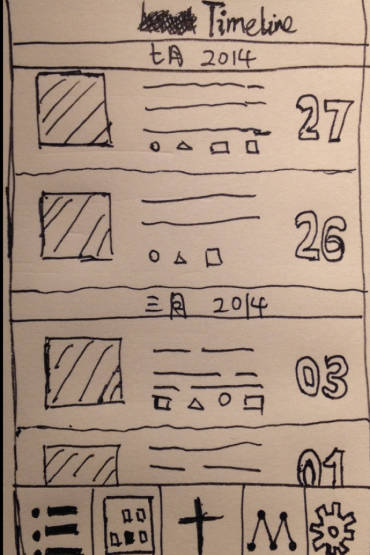 Timeline
七月 2014
27
26
三月 2014
03
01